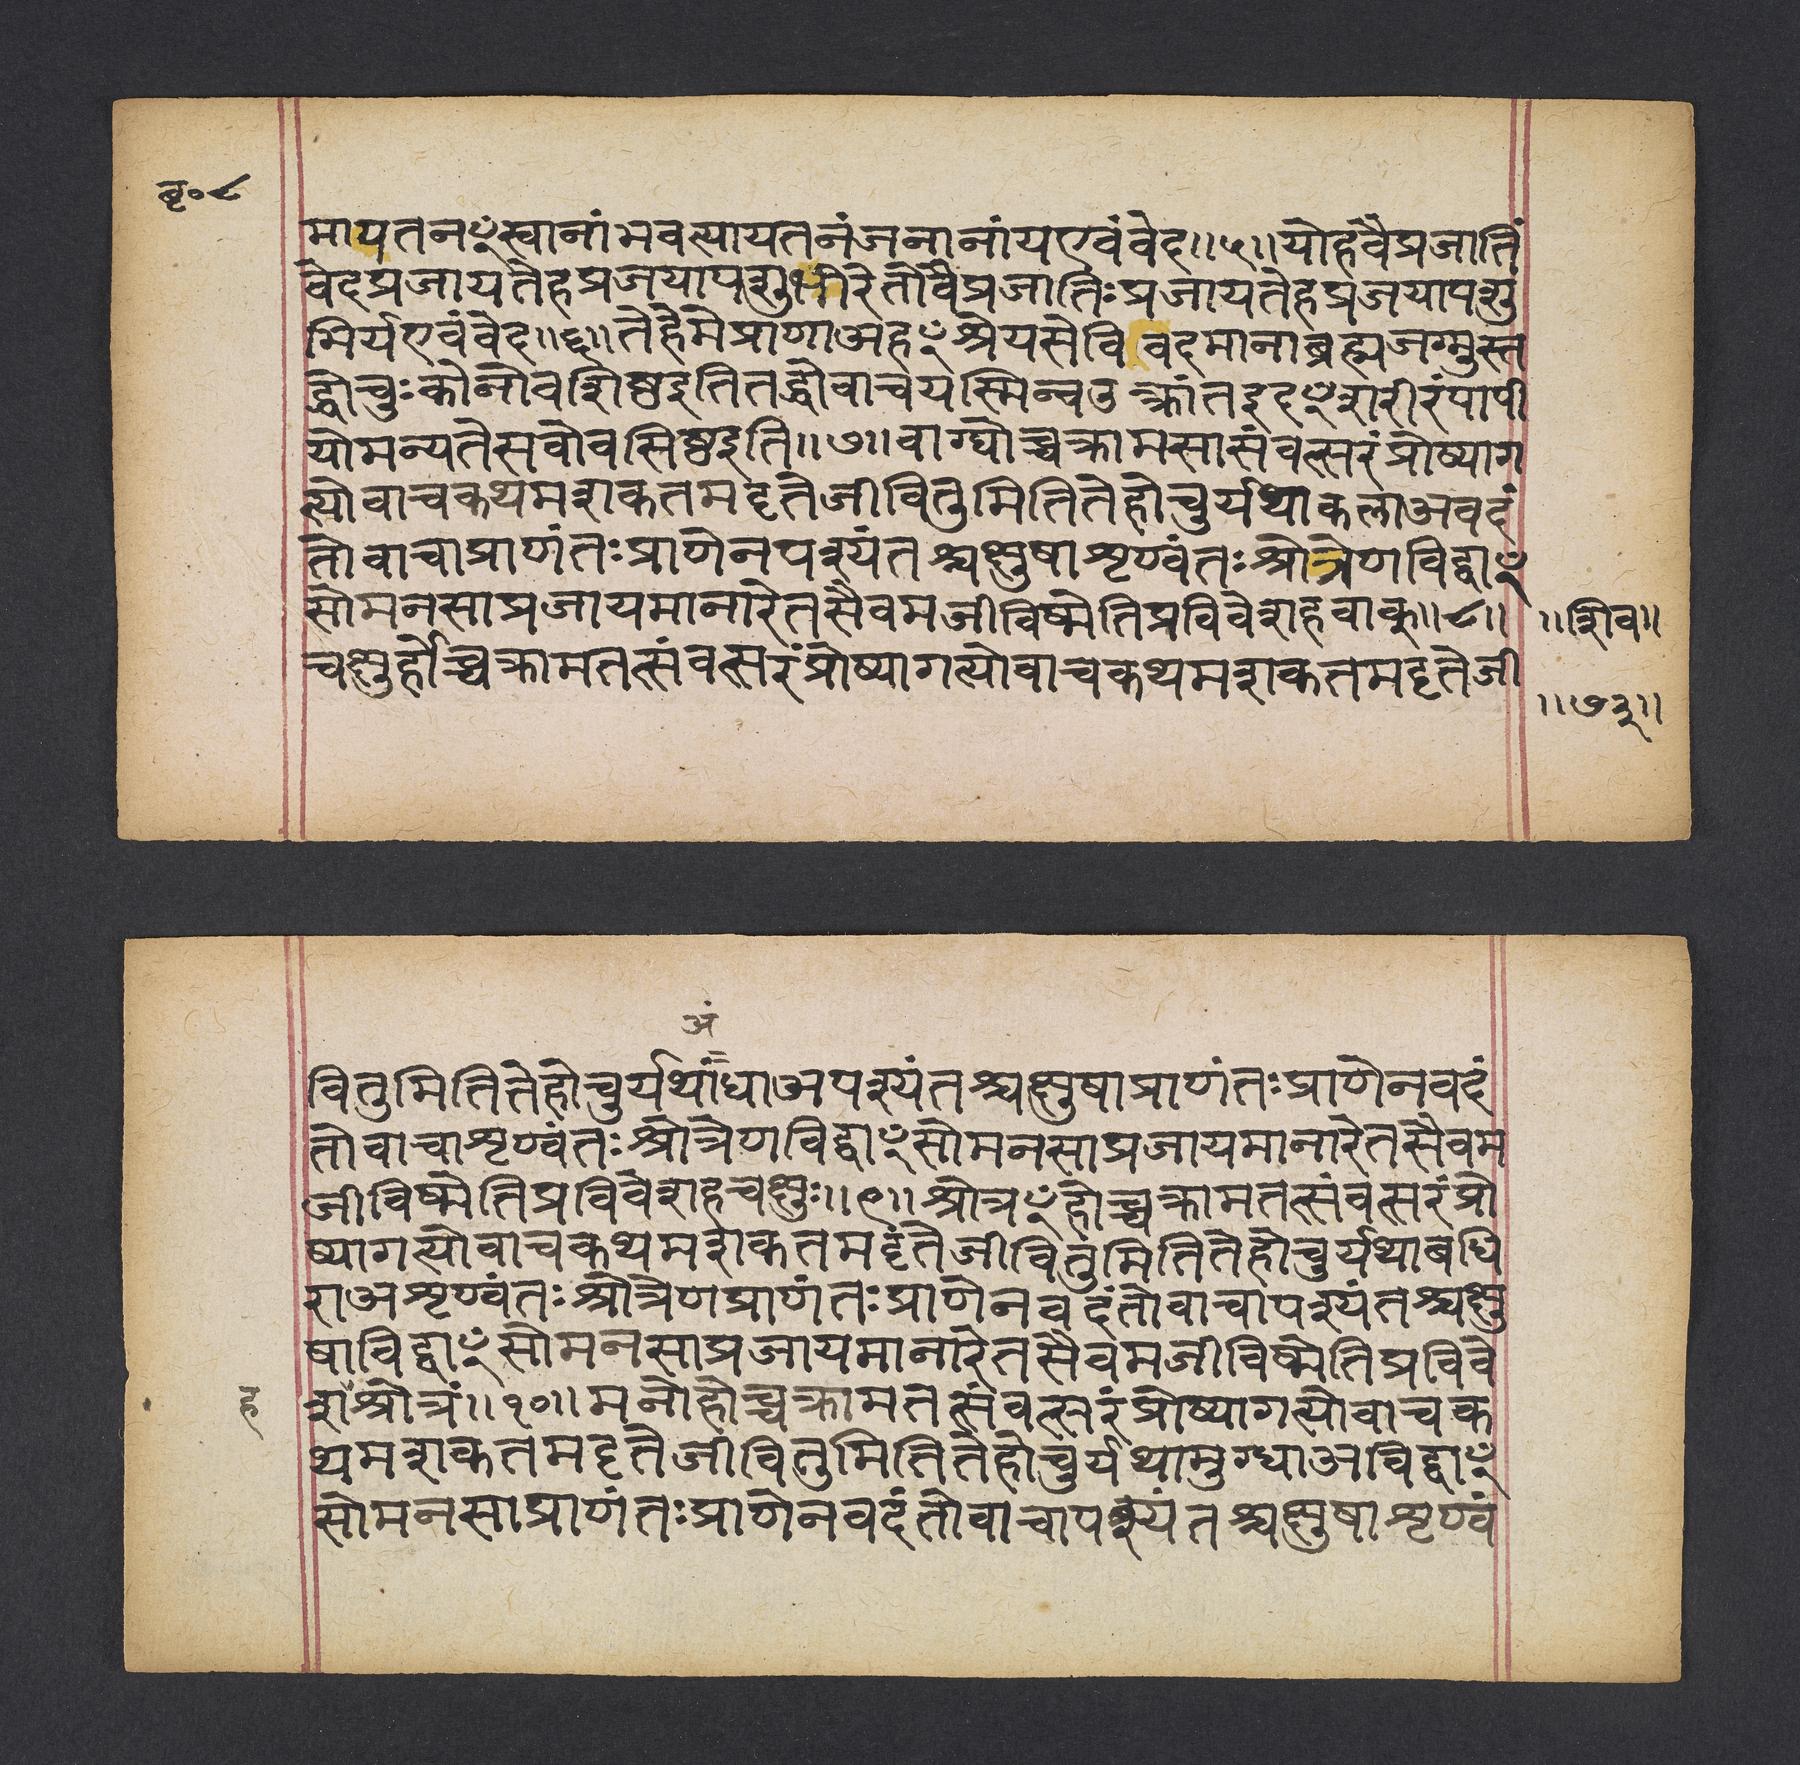 बृ॰८
मायतनꣳस्वानांभवत्यायतनंजनानांयएवंवेद॥५॥योहवैप्रजातिं
वेदप्रजायतेहप्रजयापशुभीरेतोवैप्रजातिःप्रजायतेहप्रजयापशु
भिर्यएवंवेद॥६॥तेहेमेप्राणाअहꣳश्रेयसेविवदमानाब्रह्मजग्मुस्त
द्धोचुःकोनोवशिष्ठइतितद्धोवाचयस्मिन्वउत्क्रांतइदꣳशरीरंपापी
योमन्यतेसवोवसिष्ठइति॥७॥वाग्घोच्चक्रामसासंवत्सरंप्रोष्याग
त्योवाचकथमशकतमदृतेजीवितुमितितेहोचुर्यथाकलाअवदं
तोवाचाप्राणंतःप्राणेनपश्यंतश्चक्षुषाशृण्वंतःश्रोत्रेणविद्वाꣳ
सोमनसाप्रजायमानारेतसैवमजीविष्मेतिप्रविवेशहवाक्॥८॥
॥शिव॥
चक्षुर्होच्चक्रामतत्संवत्सरंप्रोष्यागत्योवाचकथमशकतमदृतेजी
॥७३॥
अं
वितुमितितेहोचुर्यथांधाअपश्यंतश्चक्षुषाप्राणंतःप्राणेनवदं
तोवाचाशृण्वंतःश्रोत्रेणविद्वाꣳसोमनसाप्रजायमानारेतसैवम
जीविष्मेतिप्रविवेशहचक्षुः॥९॥श्रोत्रꣳहोच्चक्रामतत्संवत्सरंप्रो
ष्यागत्योवाचकथमशकतमदृतेजीवितुमितितेहोचुर्यथाबधि
राअशृण्वंतःश्रोत्रेणप्राणंतःप्राणेनवदंतोवाचापश्यंतश्चक्षु
षाविद्वाꣳसोमनसाप्रजायमानारेतसैवमजीविष्मेतिप्रविवे
ह
शश्रोत्रं॥१०॥मनोहोच्चक्रामतत्संवत्सरंप्रोष्यागत्योवाचक
थमशकतमदृतेजीवितुमितितेहोचुर्यथामुग्धाअविद्वाꣳ
सोमनसाप्राणंतःप्राणेनवदंतोवाचापश्यंतश्चक्षुषाशृण्वं